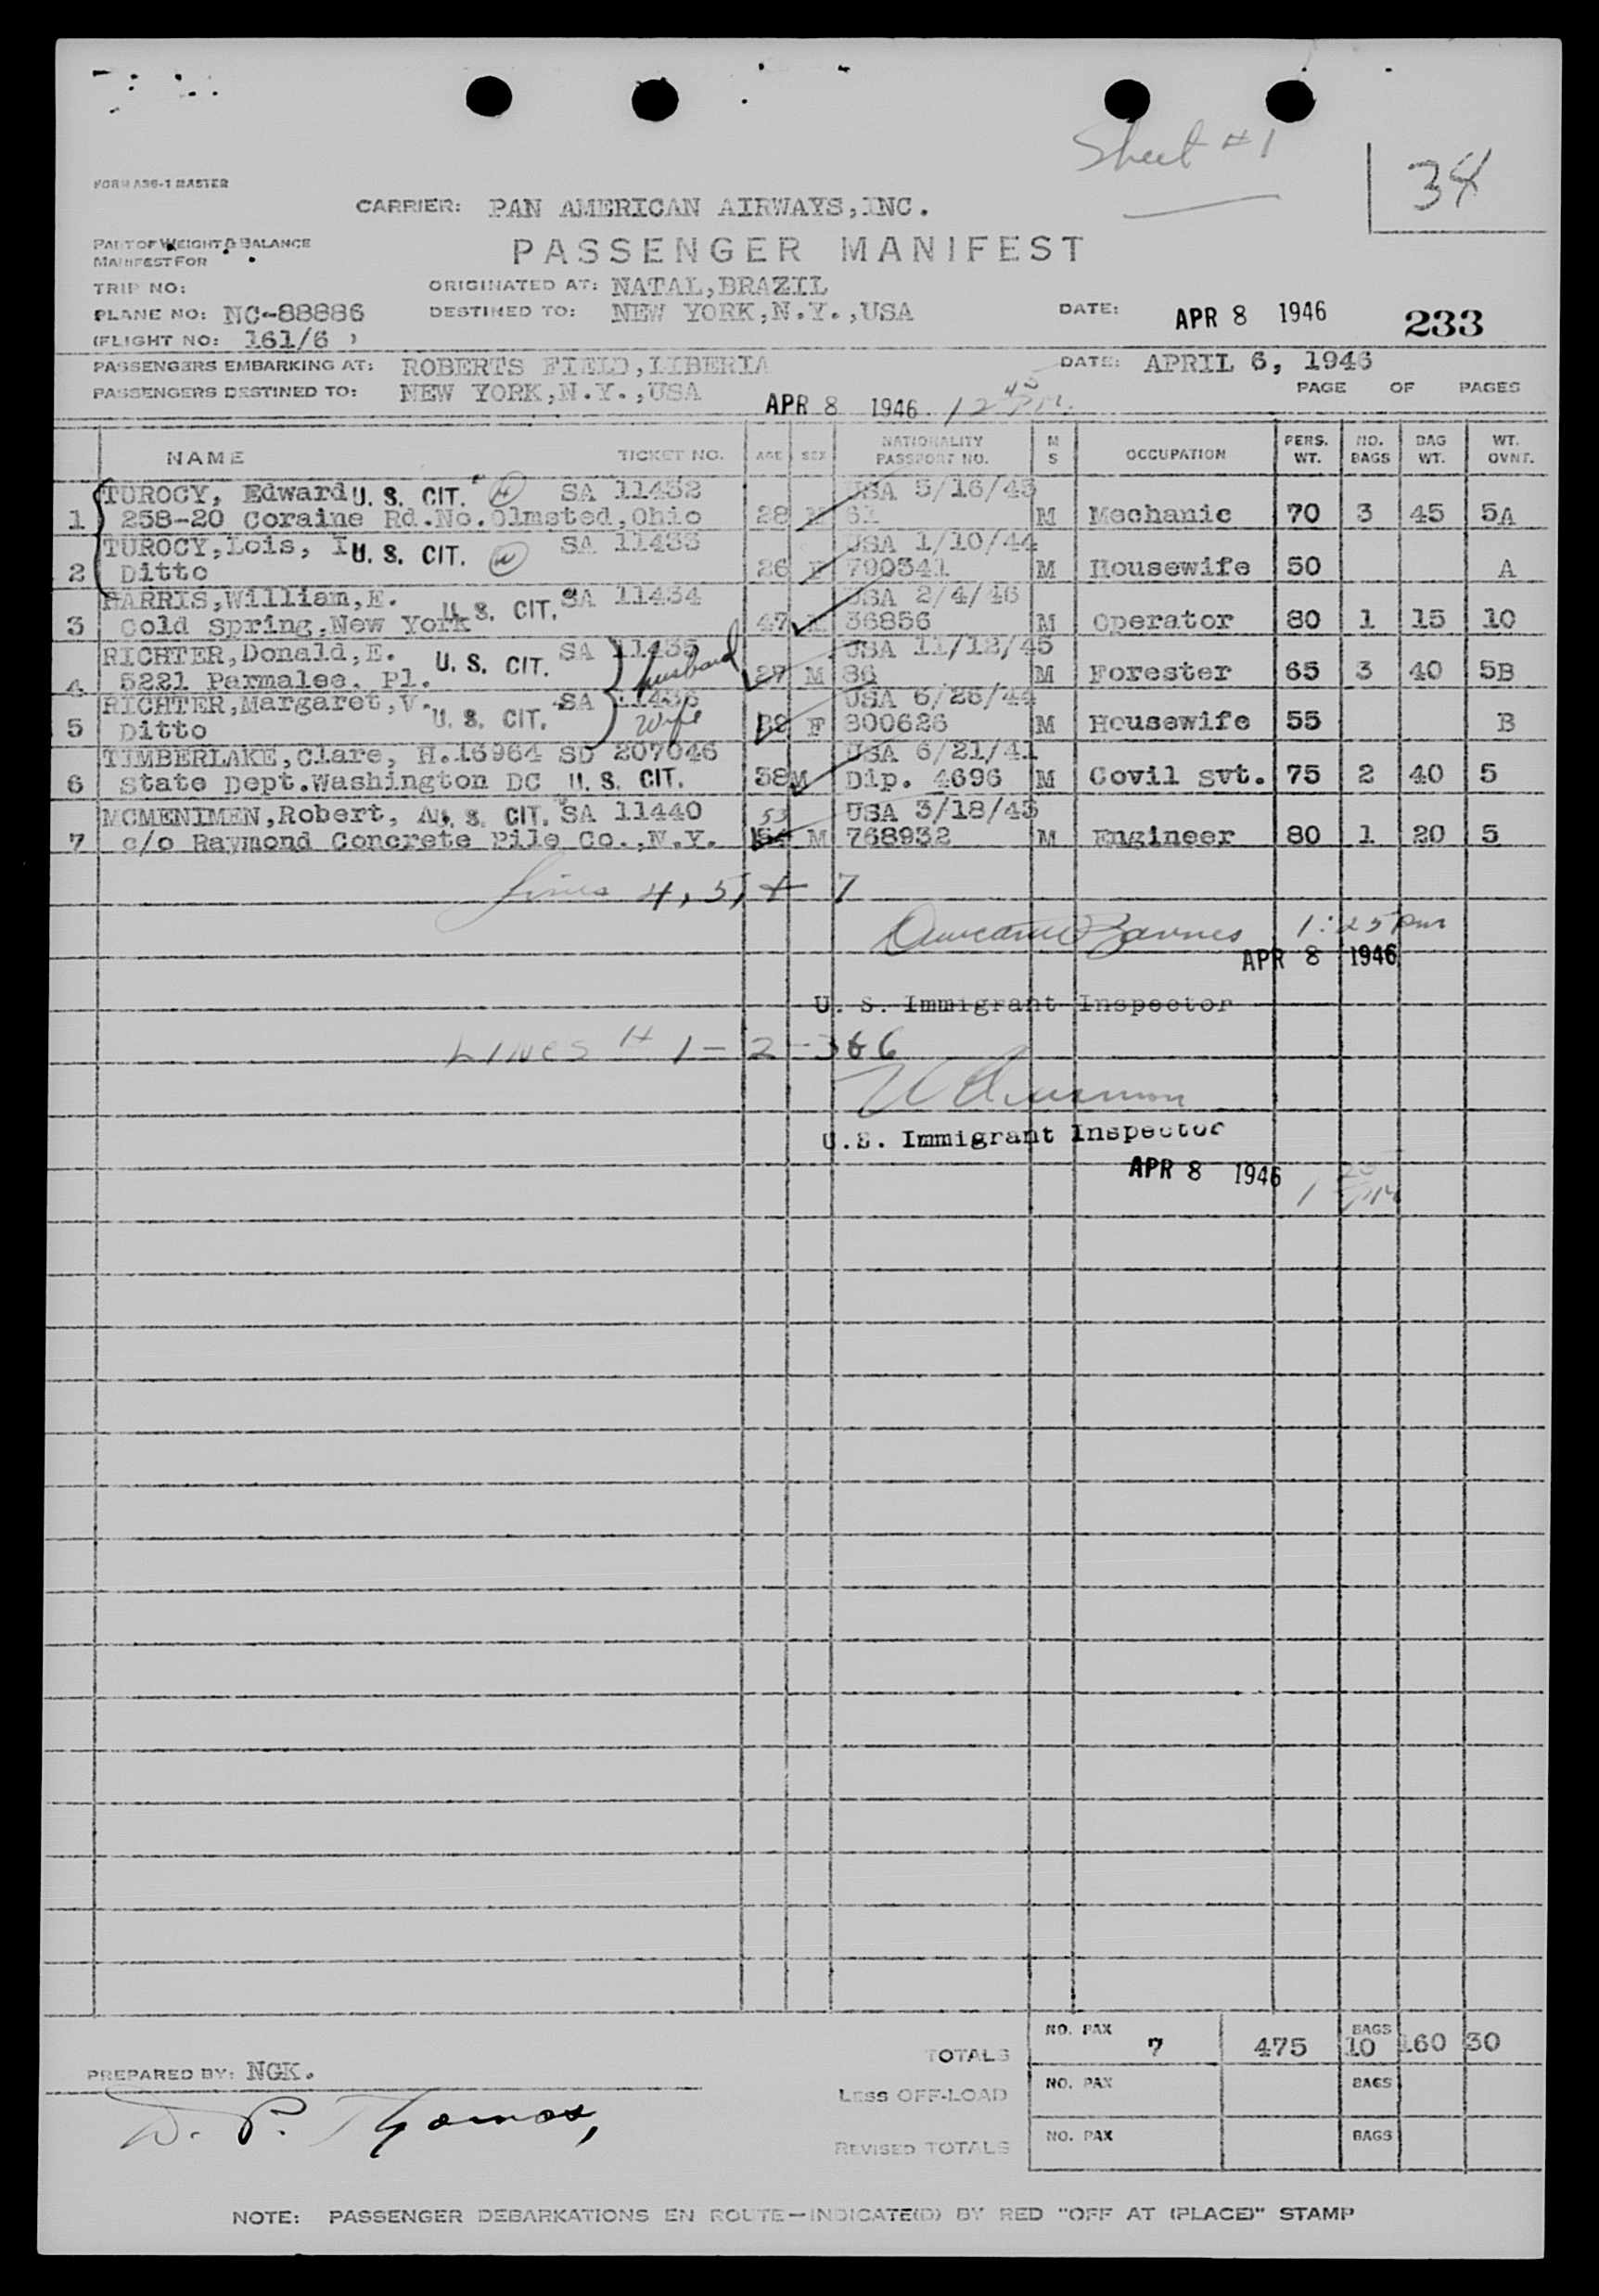 Sheet #1
34
FORM A36-1 MASTER
CARRIER: PAN AMERICAN AIRWAYS,INC.
PART OF WEIGHT & BALANCE
MANIFEST FOR
PASSENGER MANIFEST
TRIP NO:
ORIGINATED AT: NATAL,BRAZIL
PLANE NO: NC-88886
DESTINED TO: NEW YORK,N.Y.,USA
DATE: APR 8 1946
233
(FLIGHT NO: 161/6 )
PASSENGERS EMBARKING AT: ROBERTS FIELD,LIBERIA
DATE: APRIL 6, 1946
PASSENGERS DESTINED TO: NEW YORK,N.Y.,USA
APR 8 1946 12 45 P.M.
PAGE OF PAGES
NAME TICKET NO. AGE SEX NATIONALITY PASSPORT NO. M S OCCUPATION PERS. WT. NO. BAGS BAG WT. WT. OVNT.
TUROCY, Edward U. S. CIT. H SA 11432 USA 5/16/45
1 258-20 Coraine Rd.No.Olmsted,Ohio 28 M 61 M Mechanic 70 3 45 5A
TUROCY,Lois, I. U. S. CIT. W SA 11433 USA 1/10/44
2 Ditto 26 F 790341 M Housewife 50 A
HARRIS,William,E. U. S. CIT. SA 11434 USA 2/4/46
3 Cold Spring,New York 47 36856 M Operator 80 1 15 10
RICHTER,Donald,E. U. S. CIT. SA 11435 husband USA 11/12/45
4 5221 Parmalee. Pl. 27 M 86 M Forester 65 3 40 5B
RICHTER,Margaret,V. U. S. CIT. SA 11436 Wife USA 6/26/44
5 Ditto F 800626 M Housewife 55 B
TIMBERLAKE,Clare, H.16964 SD 207046 USA 6/21/41
6 State Dept.Washington DC U. S. CIT. 38 M Dip. 4696 M Covil Svt. 75 2 40 5
MCMENIMEN,Robert, A. U. S. CIT. SA 11440 53 USA 3/18/45
7 c/o Raymond Concrete Pile Co.,N.Y. M 768932 M Engineer 80 1 20 5
Lines 4, 5, + 7
Barnes 1:25 pm
APR 8 1946
U. S. Immigrant Inspector
LINES # 1-2-3&6
U.S. Immigrant Inspector
APR 8 1946
1 25 PM
TOTALS NO. PAX 7 475 BAGS 10 160 30
PREPARED BY: NGK.
LESS OFF-LOAD NO. PAX BAGS
D. P. Thomas,
REVISED TOTALS NO. PAX BAGS
NOTE: PASSENGER DEBARKATIONS EN ROUTE—INDICATE(D) BY RED "OFF AT (PLACE)" STAMP